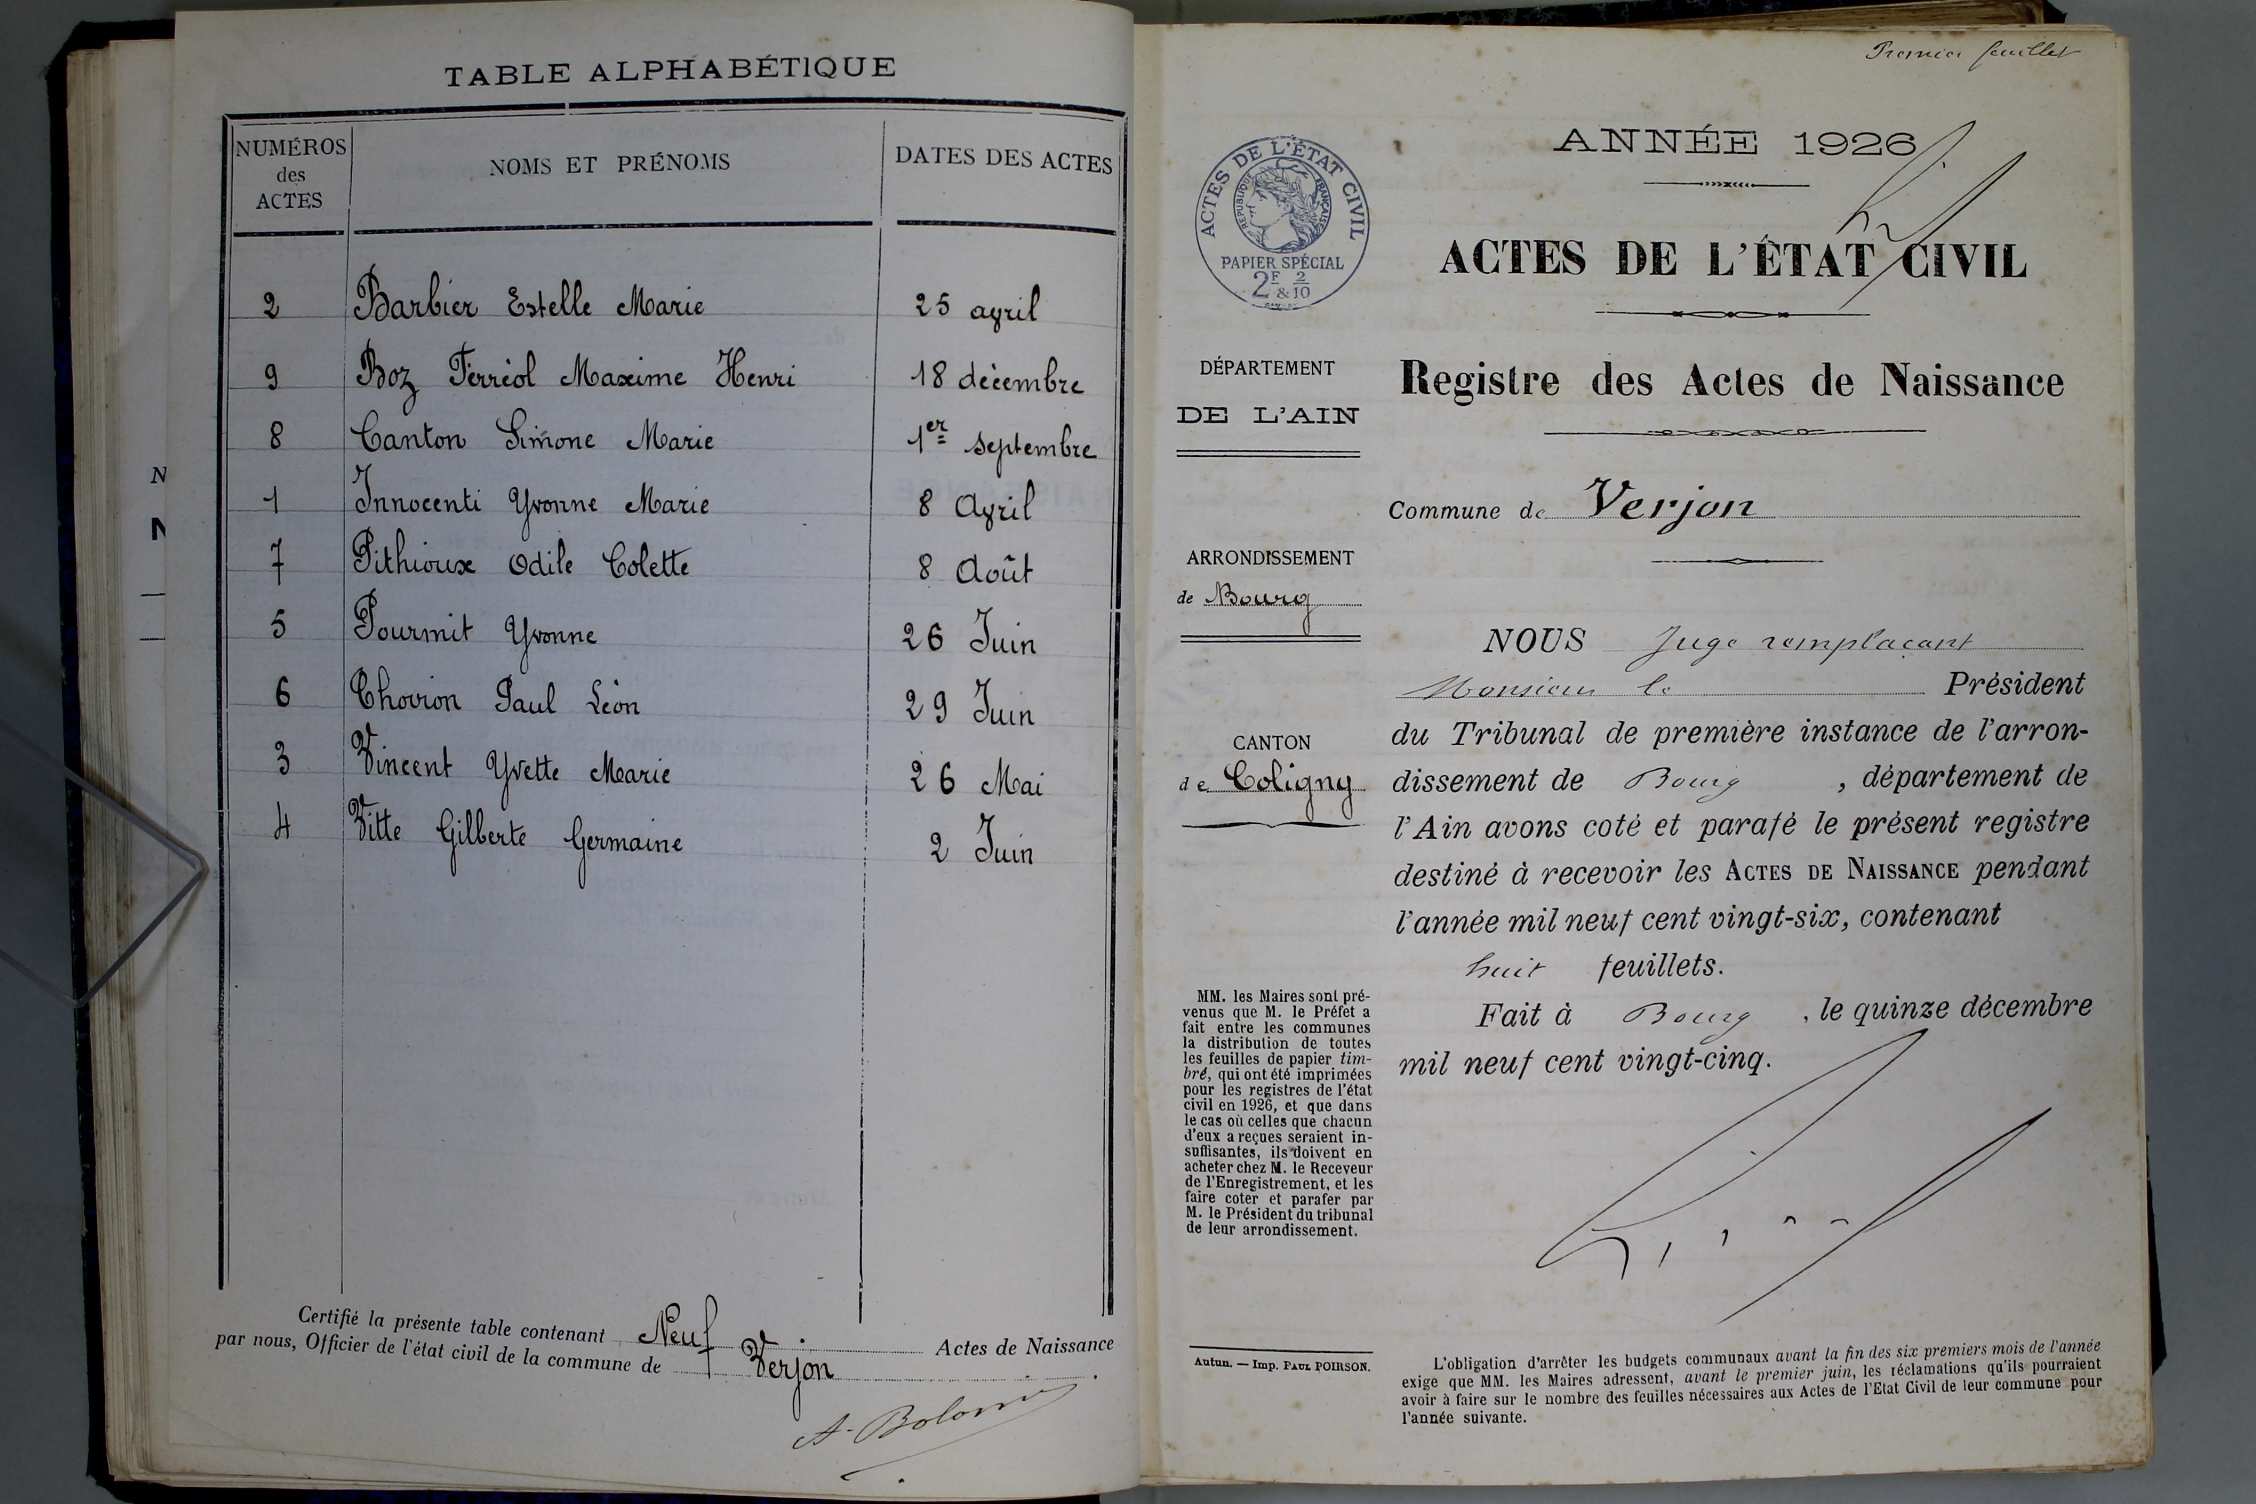 TABLE ALPHABÉTIQUE
NUMÉROS des ACTES
NOMS ET PRÉNOMS
DATES DES ACTES
2 Barbier Estelle Marie 25 avril
9 Boz Ferréol Maxime Henri 18 décembre
8 Canton Simone Marie 1er septembre
1 Innocenti Yvonne Marie 8 Avril
7 Pithioux Odile Colette 8 Août
5 Pourmit Yvonne 26 Juin
6 Chovion Paul Léon 29 Juin
3 Vincent Yvette Marie 26 Mai
4 Vitte Gilberte Germaine 2 Juin
Certifié la présente table contenant Neuf Actes de Naissance
par nous, Officier de l'état civil de la commune de Verjon
N
N
Premier feuillet
ANNÉE 1926
ACTES DE L'ÉTAT CIVIL
RÉPUBLIQUE FRANÇAISE
PAPIER SPÉCIAL
2F & 2/10
ACTES DE L'ÉTAT CIVIL
DÉPARTEMENT
DE L'AIN
Registre des Actes de Naissance
Commune de Verjon
ARRONDISSEMENT
de Bourg
CANTON
de Coligny
NOUS Juge remplaçant
Monsieur le Président
du Tribunal de première instance de l'arron-
dissement de Bourg, département de
l'Ain avons coté et parafé le présent registre
destiné à recevoir les ACTES DE NAISSANCE pendant
l'année mil neuf cent vingt-six, contenant
huit feuillets.
Fait à Bourg, le quinze décembre
mil neuf cent vingt-cinq.
MM. les Maires sont pré-
venus que M. le Préfet a
fait entre les communes
la distribution de toutes
les feuilles de papier tim-
bré, qui ont été imprimées
pour les registres de l'état
civil en 1926, et que dans
le cas où celles que chacun
d'eux a reçues seraient in-
suffisantes, ils doivent en
acheter chez M. le Receveur
de l'Enregistrement, et les
faire coter et parafer par
M. le Président du tribunal
de leur arrondissement.
Autun. — Imp. PAUL POIRSON.
L'obligation d'arrêter les budgets communaux avant la fin des six premiers mois de l'année
exige que MM. les Maires adressent, avant le premier juin, les réclamations qu'ils pourraient
avoir à faire sur le nombre des feuilles nécessaires aux Actes de l'Etat Civil de leur commune pour
l'année suivante.